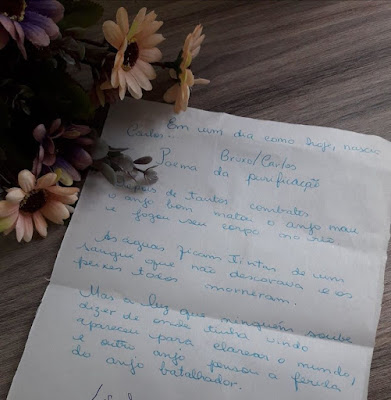 Em um dia como hoje, nascia
Carlos...
Bruxo/Carlos
Poema da purificação
Depois de tantos combates
o anjo bom matou o anjo mau
e jogou seu corpo no rio
As águas ficam tintas de um
sangue que não descorava e os
peixes todos morreram.
Mas a luz que ninguém soube
dizer de onde tinha vindo
apareceu para clarear o mundo,
e outro anjo pensou a ferida
do anjo batalhador.